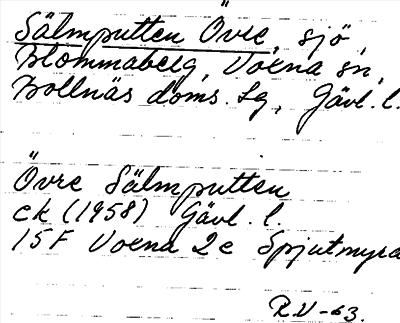 Sälmputten Övre, sjö,
Blommaberg, Voxna sn,
Bollnäs doms. sg, Gävl. l.
Övre Sälmputten
ek (1958) Gävl. l.
15F Voxna 2c Spjutmyra
R.V-63.